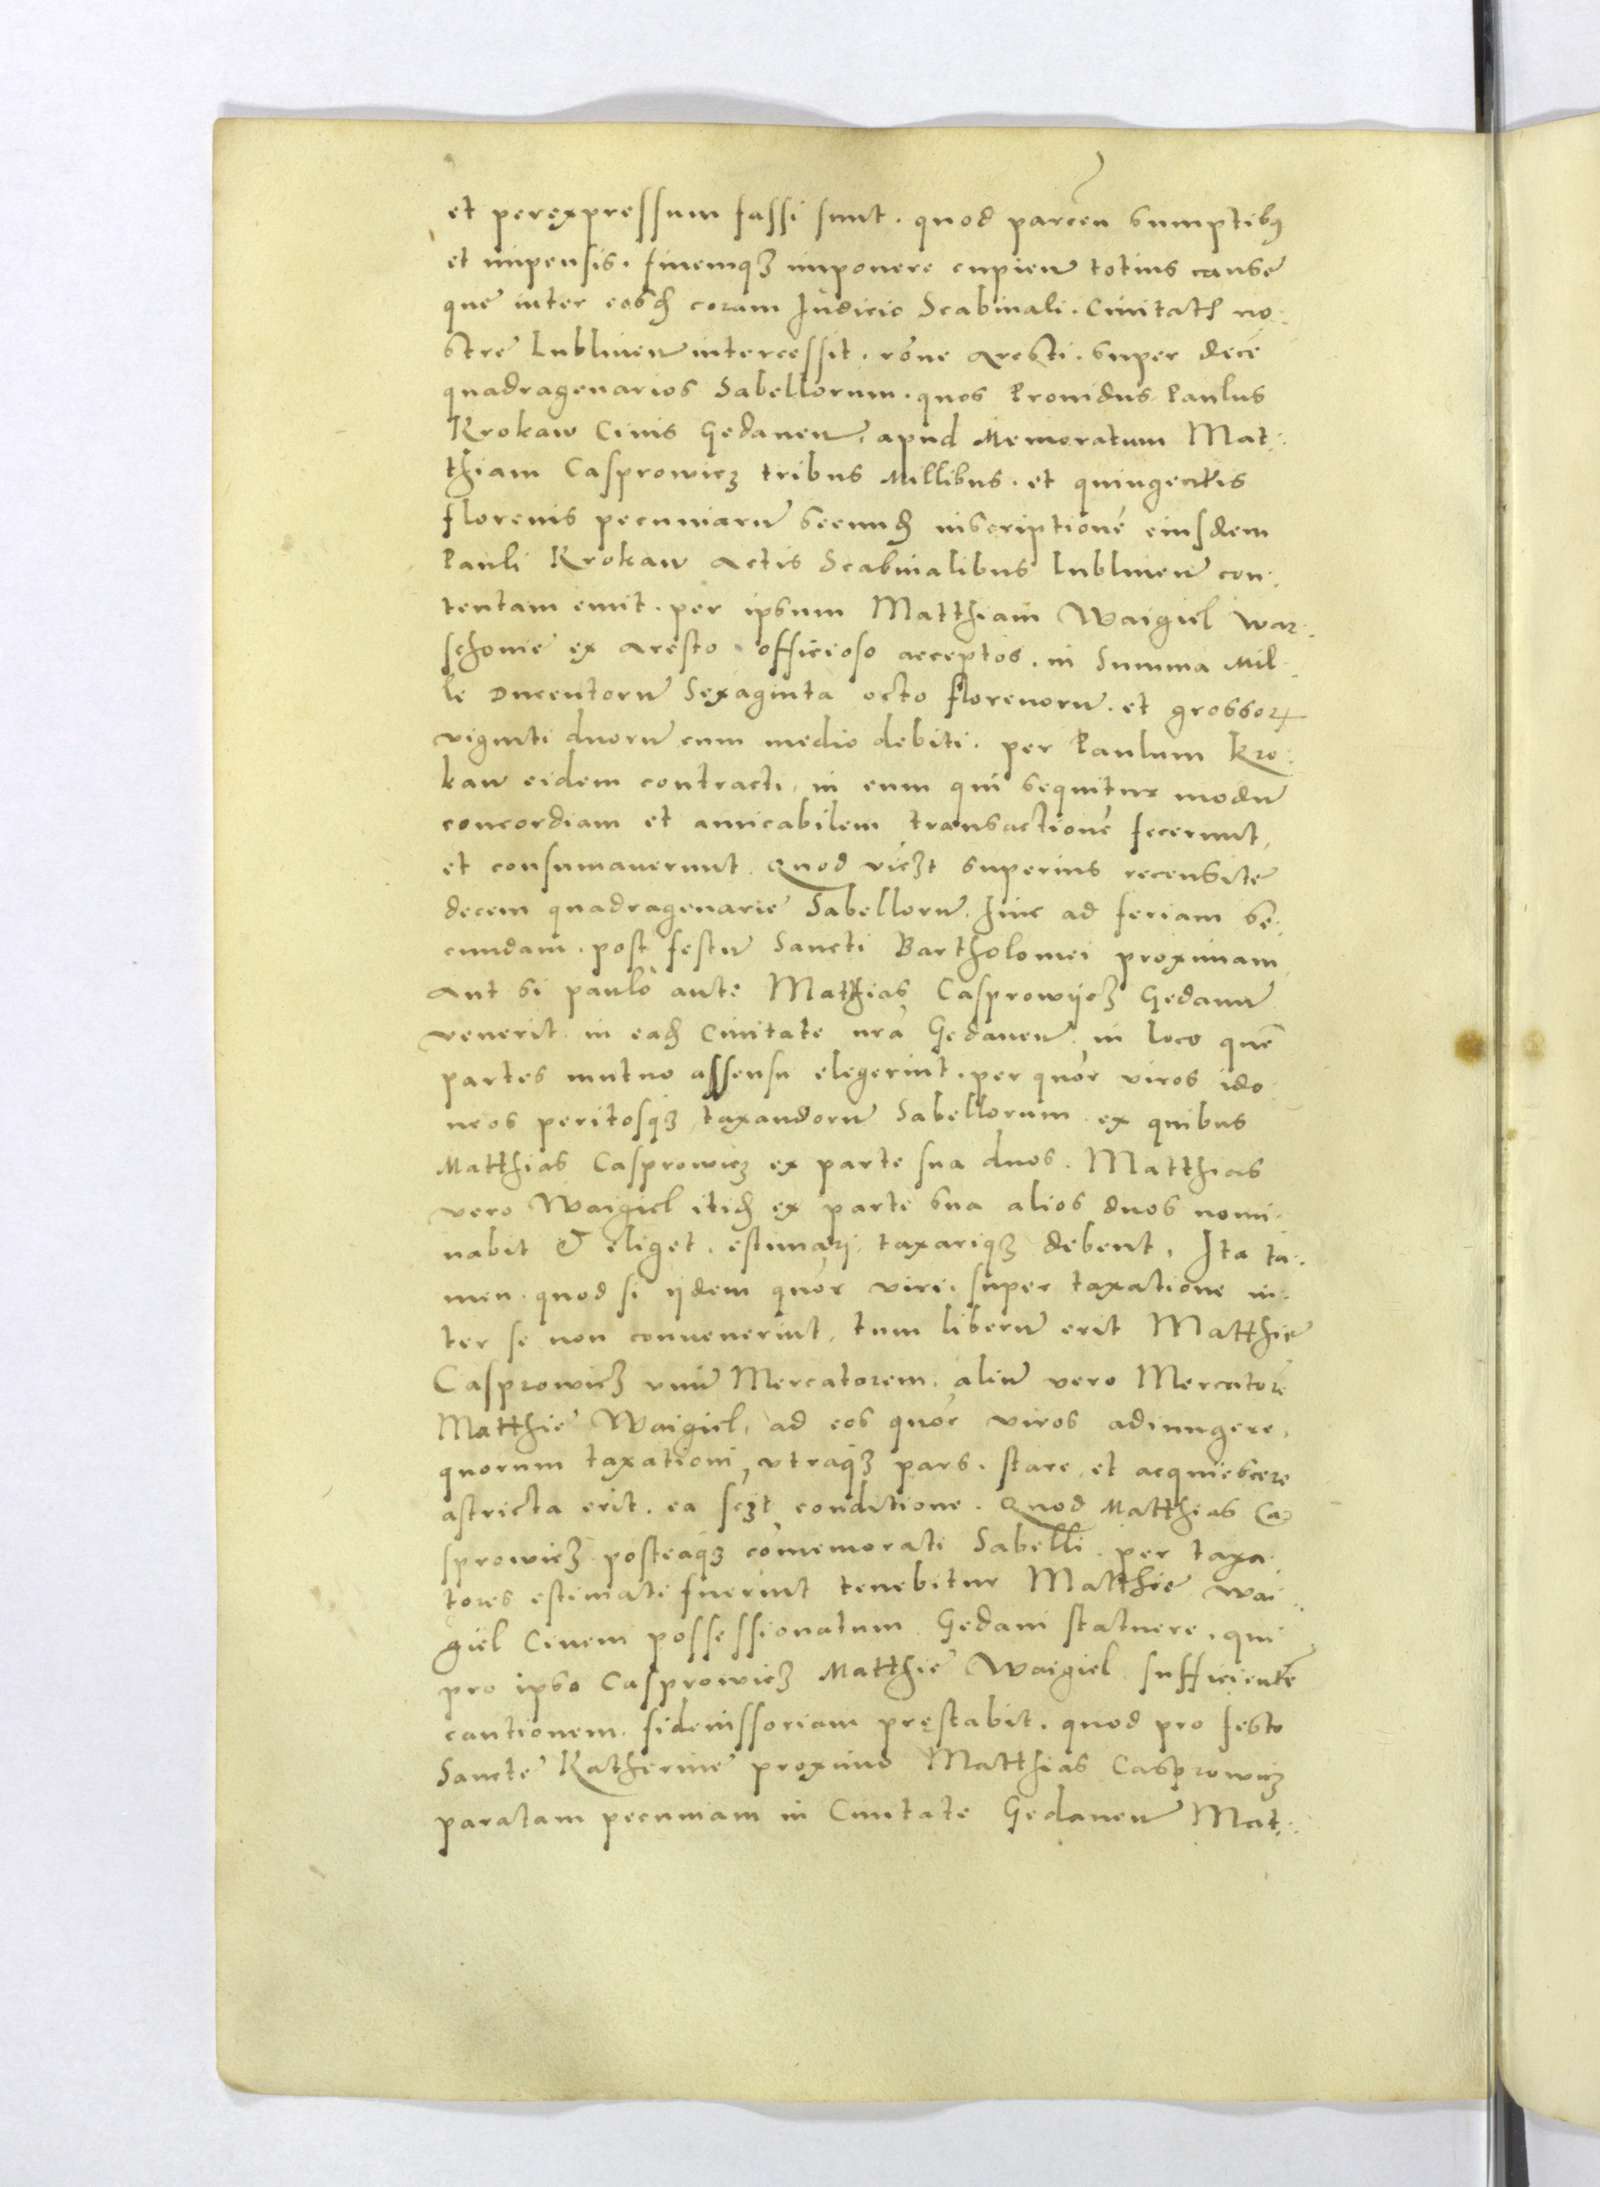 et perexpressum fassi sunt. quod parcen̄ sumptibꝰ
et impensis. finemqꝫ imponere cupien̄ totius cause
que inter eosđ coram Judicio Scabinali. Civitatis no-
stre Lublinen̄ intercessit. rōne aresti. super decē
quadragenarios Sabellorum. quos Prouidus Paulus
Krokaw Ciuis Gedanen̄, apud Memoratum Mat-
thiam Casprowicz tribus Millibus. et quingentis
florenis pecuniarū secunđ inscriptionē eiusdem
Pauli Krokaw Actis Scabinalibus lublinen̄ con-
tentam emit. per ipsum Matthiam Waigiel War-
schouie ex aresto officioso acceptos. in Summa Mil-
le Ducentorū Sexaginta octo florenorū. et grossoꝝ
viginti duorū cum medio debiti. per Paulum Kro-
kaw eidem contracti, in eum qui sequitur modū
concordiam et amicabilem transactionē fecerunt,
et consumauerunt. Quod vicꝫt superius recensite
decem quadragenarie Sabellorū. hinc ad feriam se-
cundam. post festū Sancti Bartholomei proximam
Aut si paulo ante Matthias Casprowijcz Gedanū
venerit. in eađ Ciuitate nrā Gedanen̄. in loco quē
partes mutuo assensu elegerint. per quōr viros ido
neos peritosqꝫ taxandorū Sabellorum. ex quibus
Matthias Casprowicz ex parte sua duos. Matthias
vero Waigiel itiđ ex parte sua alios duos nomi-
nabit & eliget. estimari, taxariqꝫ debent. Ita ta-
men. quod si ijdem quōr viri. super taxatione in-
ter se non conuenerint, tum liberū erit Matthie
Casprowicz vnū Mercatorem. aliū vero Mercatorē
Matthie Waigiel, ad eos quōr viros adiungere,
quorum taxationi, vtraqꝫ pars. stare, et acquiescere
astricta erit. ea scꝫt conditione. Quod Matthias Ca-
sprowicz. posteaqꝫ cōmemorati Sabelli. per taxa-
tores estimati fuerint tenebitur Matthie Wai-
giel Ciuem possessionatum. Gedani statuere. qui
pro ipso Casprowicz Matthie Waigiel sufficientē
cautionem. fideiussoriam prestabit. quod pro festo
Sancte Katherine proximo Matthias Casprowicz
paratam pecuniam in Ciuitate Gedanen̄ Mat-